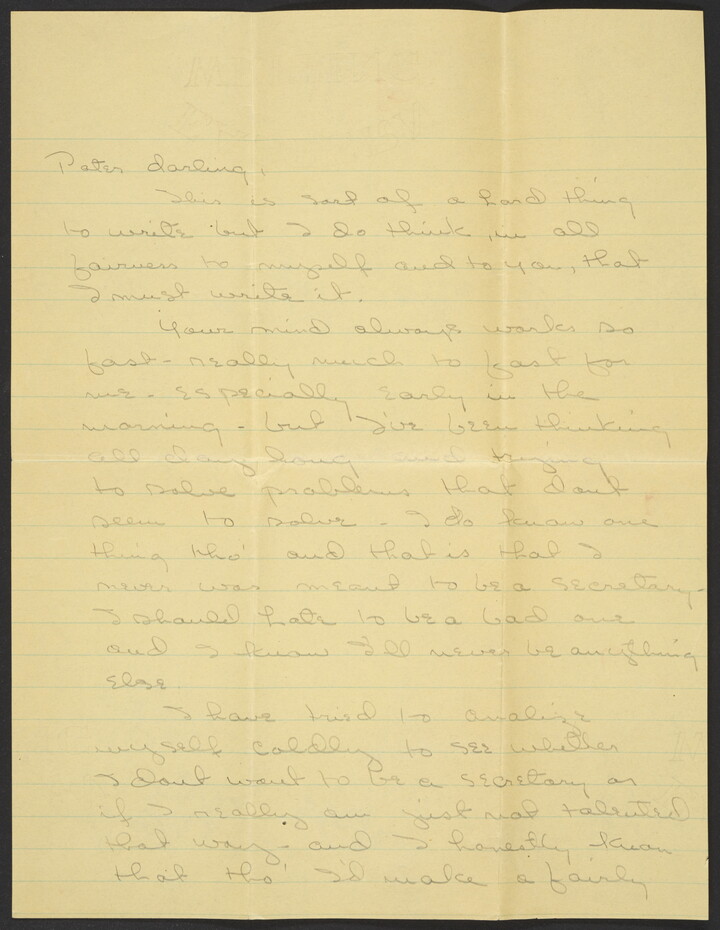 Peter darling,
This is sort of a hard thing
to write but I do think, in all
fairness to myself and to you, that
I must write it.
Your mind always works so
fast - really much to fast for
me - especially early in the
morning - but I've been thinking
all day long and trying
to solve problems that dont
seem to solve - I do know one
thing tho' and that is that I
never was meant to be a secretary -
I should hate to be a bad one
and I know I'll never be anything
else.
I have tried to analize
myself coldly to see whether
I dont want to be a secretary or
if I really am just not talented
that way - and I honestly know
that tho' I'd make a fairly